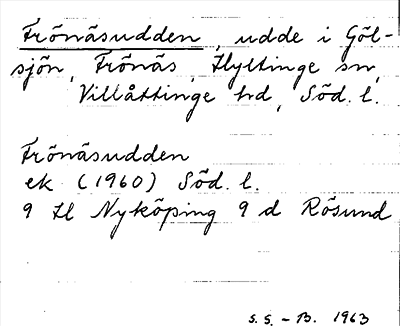 Frönäsudden, udde i Göl-
sjön, Frönäs, Hyltinge sn,
Villåttinge hd, Söd. l.
Frönäsudden
ek (1960) Söd. l.
9 H Nyköping 9 d Rösund
S.S. - B. 1963